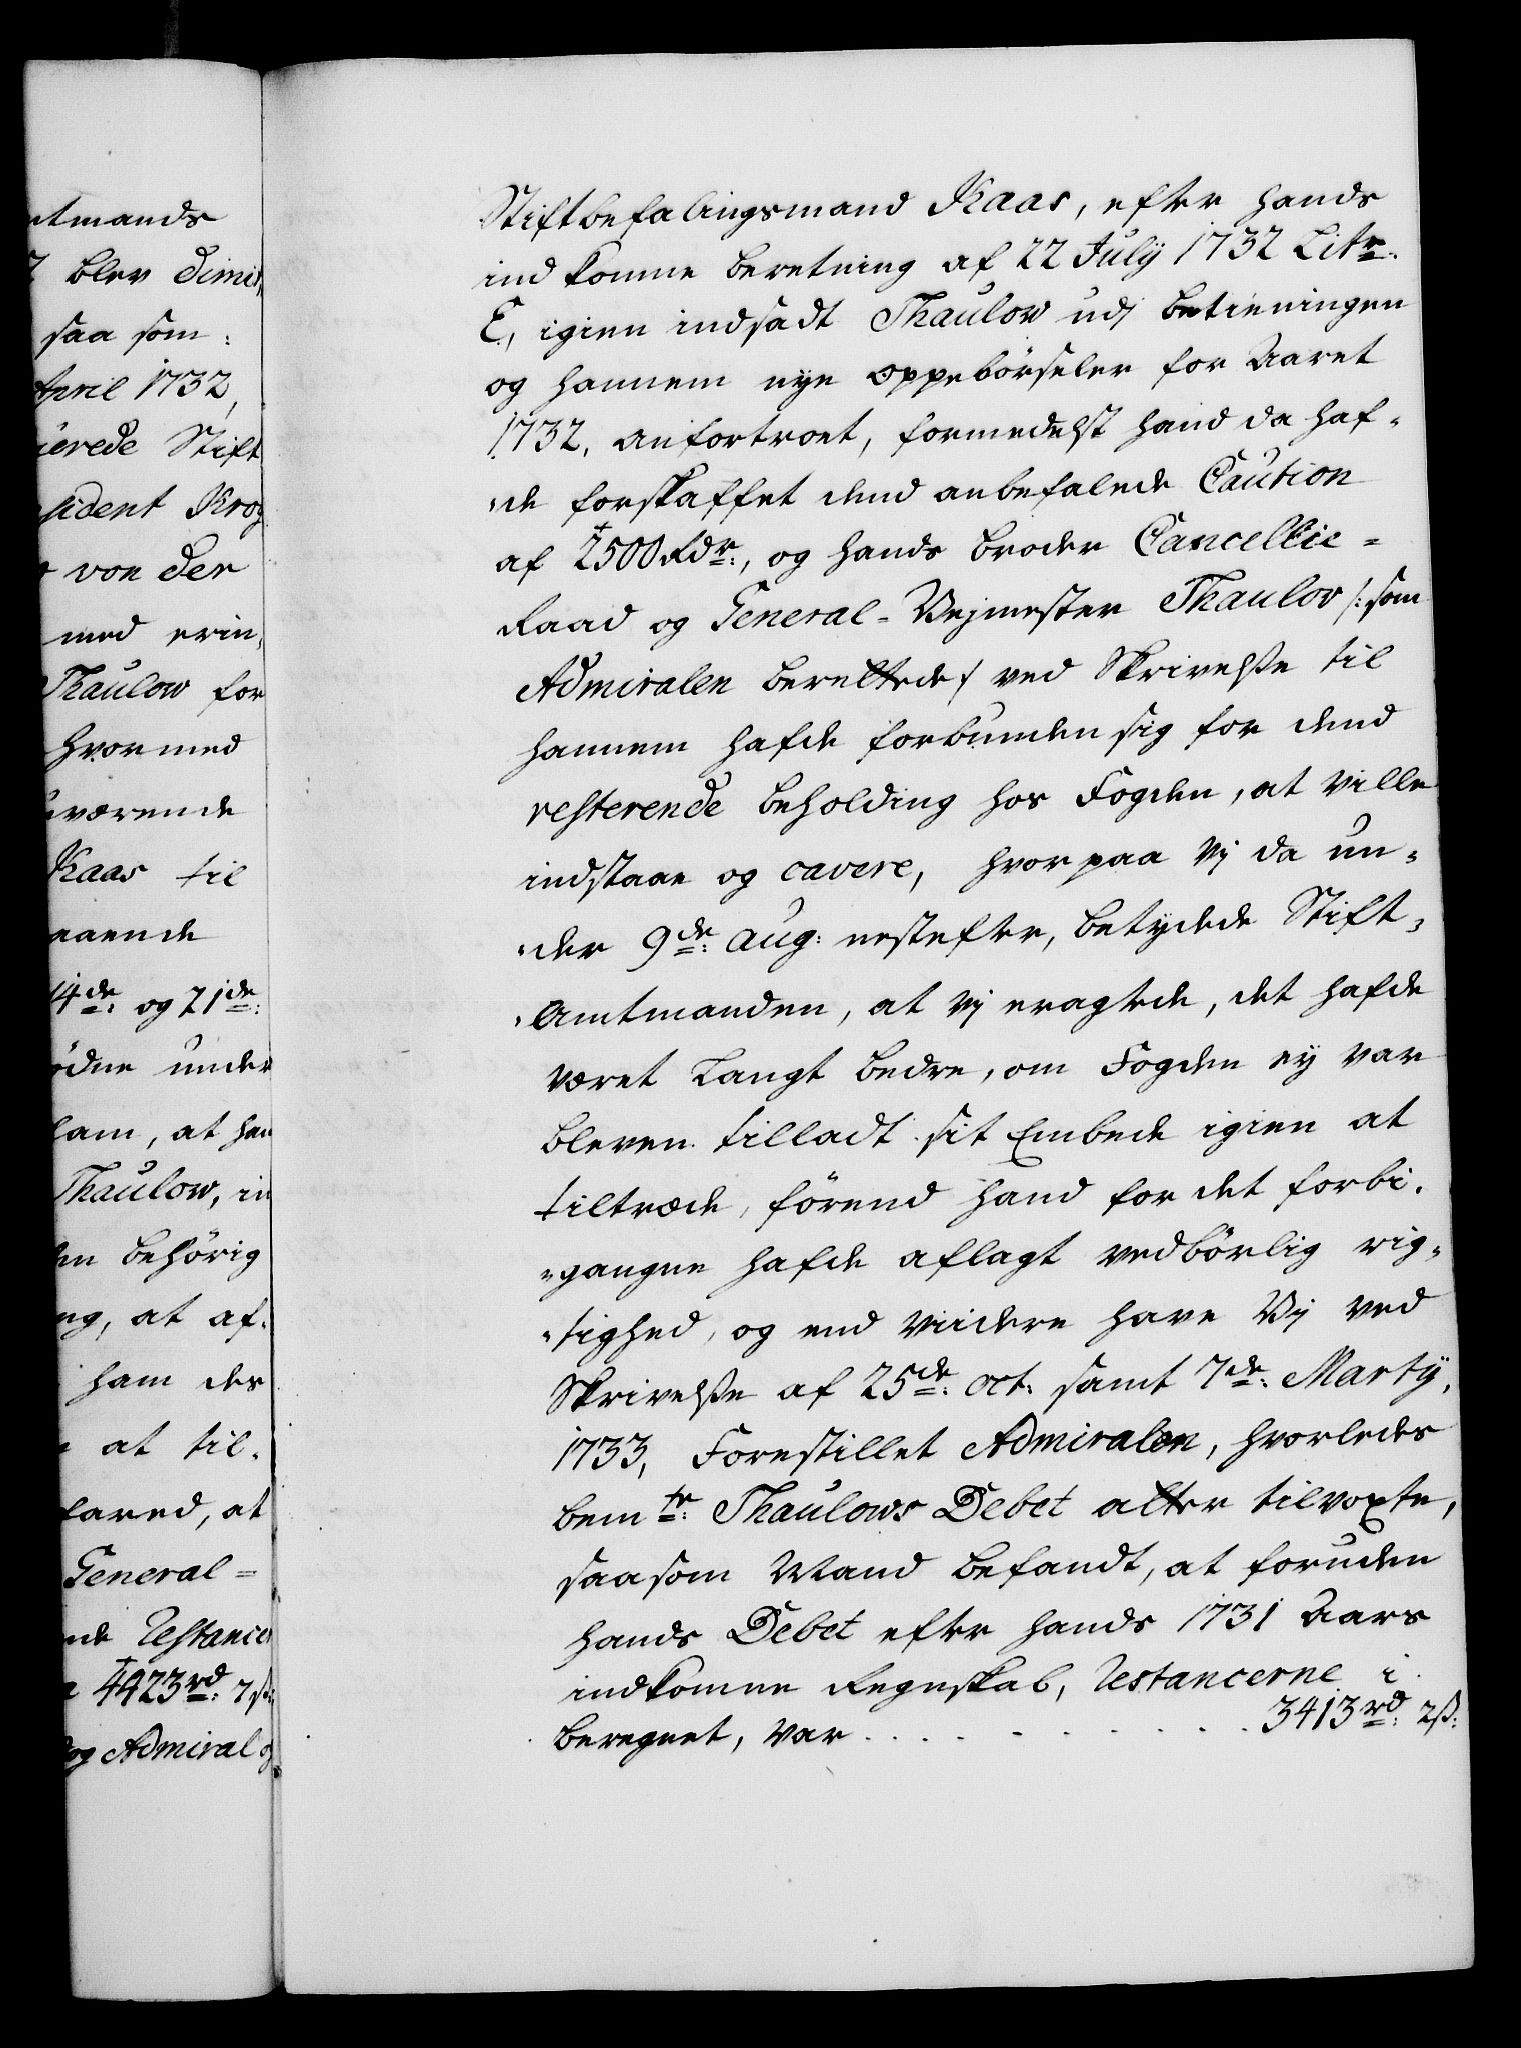 ntmands
blev dimit,
saa som:
April 1732,
ierede Stift
sident Krog
von der
med erin,
Thaulow for
hvormed
værende
Kaas til
naaende
14de og 21de:
ødne under
ham, at han
Thaulow, in
den behörig
ng, at af:
ham des
at til.
fared, at
General=
nde Restance
4423rd: 7ß:
og Admiral og
Stiftbefalingsmand Kaas, efter hands
indkomne beretning af 22 July 1732 Litr:
E, igien indsadt Thaulow udj betieningen
og hannem nye oppebörseler for Aaret
1732, anfortroet, formedelst hand da haf-
de forskaffet dend anbefalede Caution
af 2500 Rdr:, og hands broder Cancellie=
Raad og General-Vejmester Thaulov /: som
Admiralen berettede :/ ved Skrivelße til
hannem hafde forbunden sig for dend
resterende beholding hos Fogden, at ville
indstaae og cavere, hvorpaa Vj da un-
der 9de: Aug: nestefter, betydede Stift-
Amtmanden, at Vj eragtede, det hafde
været Langt bedre, om Fogden ej var
bleven tilladt sit Embede igien at
tiltræde, förend hand for det forbi-
gangne hafde aflagt vedbörlig rig-
tighed, og end Viidere have Vj ved
Skrivelße af 25de: Oct: samt 7de: Martij,
1733, Forestillet Admiralen, hvorledes
bemte: Thaulows Debet alter tilvoxte,
saasom Mand befandt, at foruden
hands Debet efter hands 1731 Aars
indkomne Regnskab, Restancerne i
beregnet, var . . . . . . . . . 3413rd: 2ß: